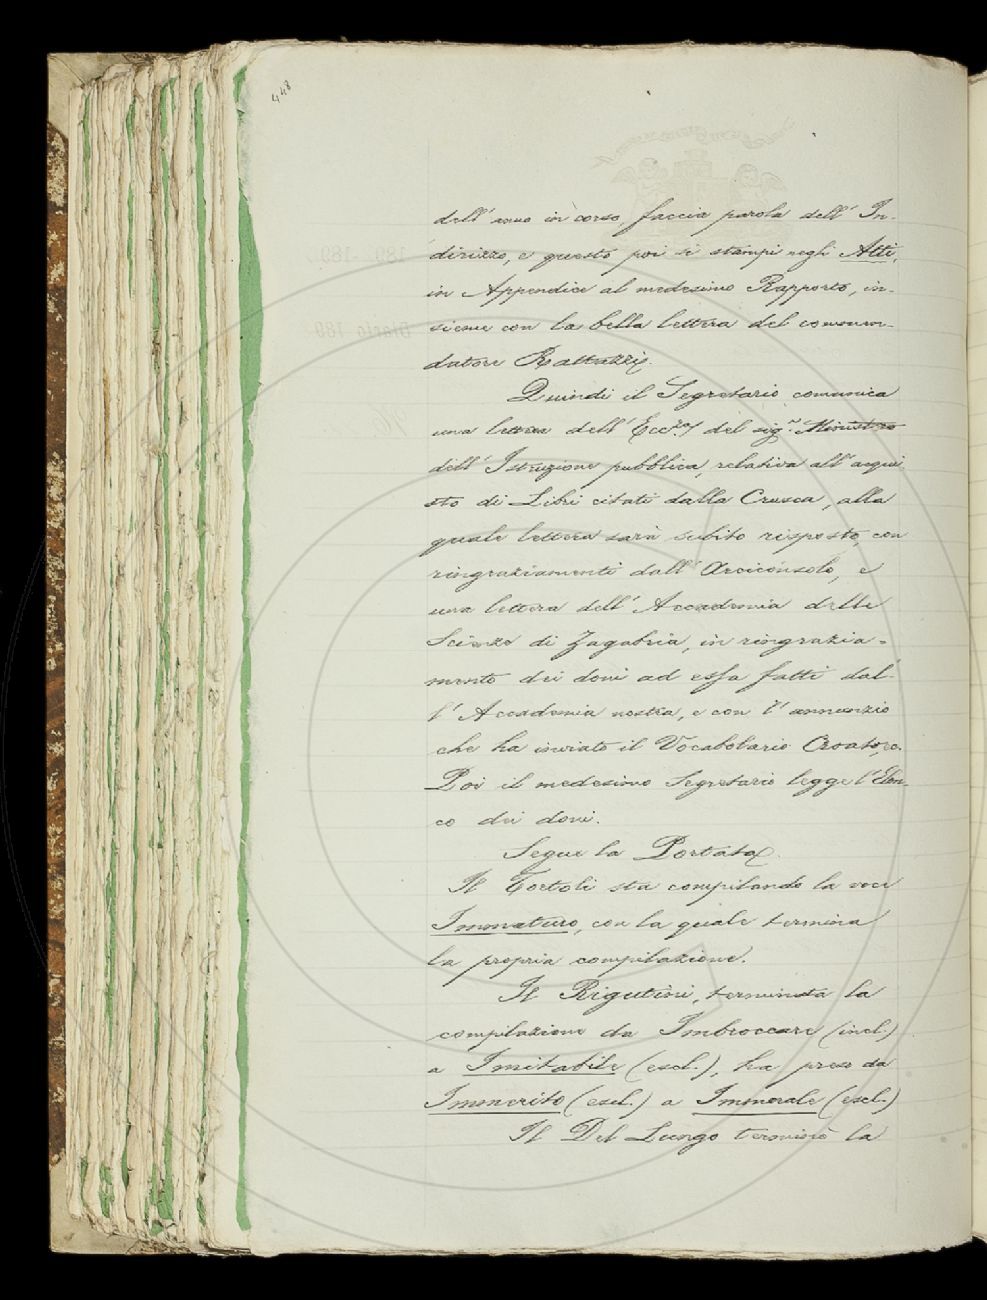 448
dell'anno in corso, faccia parola dell'In-
dirizzo, e questo poi si stampi negli Atti,
in Appendice al medesimo Rapporto, in-
sieme con la bella lettera del commen-
datore Rattazzi.
Quindi il Segretario comunica
una lettera dell'Ecc.za del sig.r Ministro
dell'Istruzione pubblica, relativa all'acqui
sto di Libri citati dalla Crusca, alla
quale lettera sarà subito risposto, con
ringraziamenti dall'Arciconsolo, e
una lettera dell'Accademia delle
Scienze di Zagabria, in ringrazia-
mento dei doni ad essa fatti dal-
l'Accademia nostra, e con l'annunzio
che ha inviato il Vocabolario Croato, ec.
Poi il medesimo Segretario legge l'Elen-
co dei doni.
Segue la Portata.
Il Tortoli sta compilando la voce
Immaturo, con la quale termina
la propria compilazione.
Il Rigutini, terminata la
compilazione da Imbroccare (incl.)
a Imitabile (escl.), ha preso da
Immerito (escl.) a Immorale (escl.)
Il Del Lungo terminò la